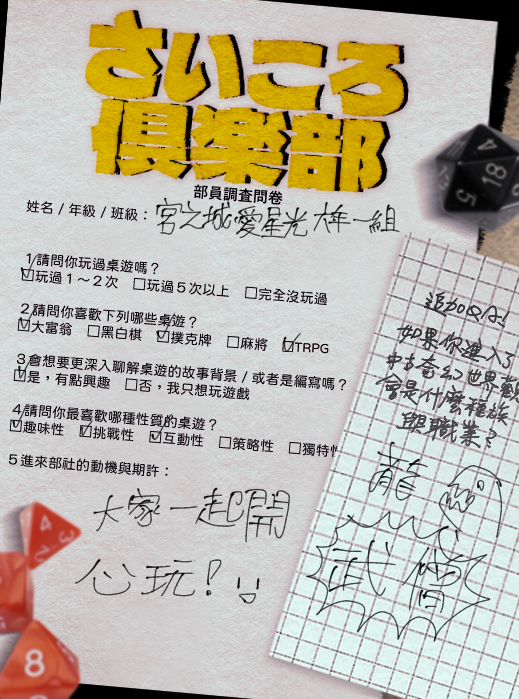 さいころ
倶楽部
部員調查問卷
姓名 / 年級 / 班級：宮之城愛星光 六年一組
1 請問你玩過桌遊嗎？
☑玩過１～２次　☐玩過５次以上　☐完全沒玩過
2 請問你喜歡下列哪些桌遊？
☑大富翁　☐黑白棋　☑撲克牌　☐麻將　☑TRPG
3 會想要更深入聊解桌遊的故事背景 / 或者是編寫嗎？
☑是，有點興趣　☐否，我只想玩遊戲
4 請問你最喜歡哪種性質的桌遊？
☑趣味性　☑挑戰性　☑互動性　☐策略性　☐獨特性
5 進來部社的動機與期許：
大家一起開
心玩！
追加Q&A!
如果你進入了
中古奇幻世界觀
會是什麼種族
跟職業？
龍
武僧
4
18
5
8